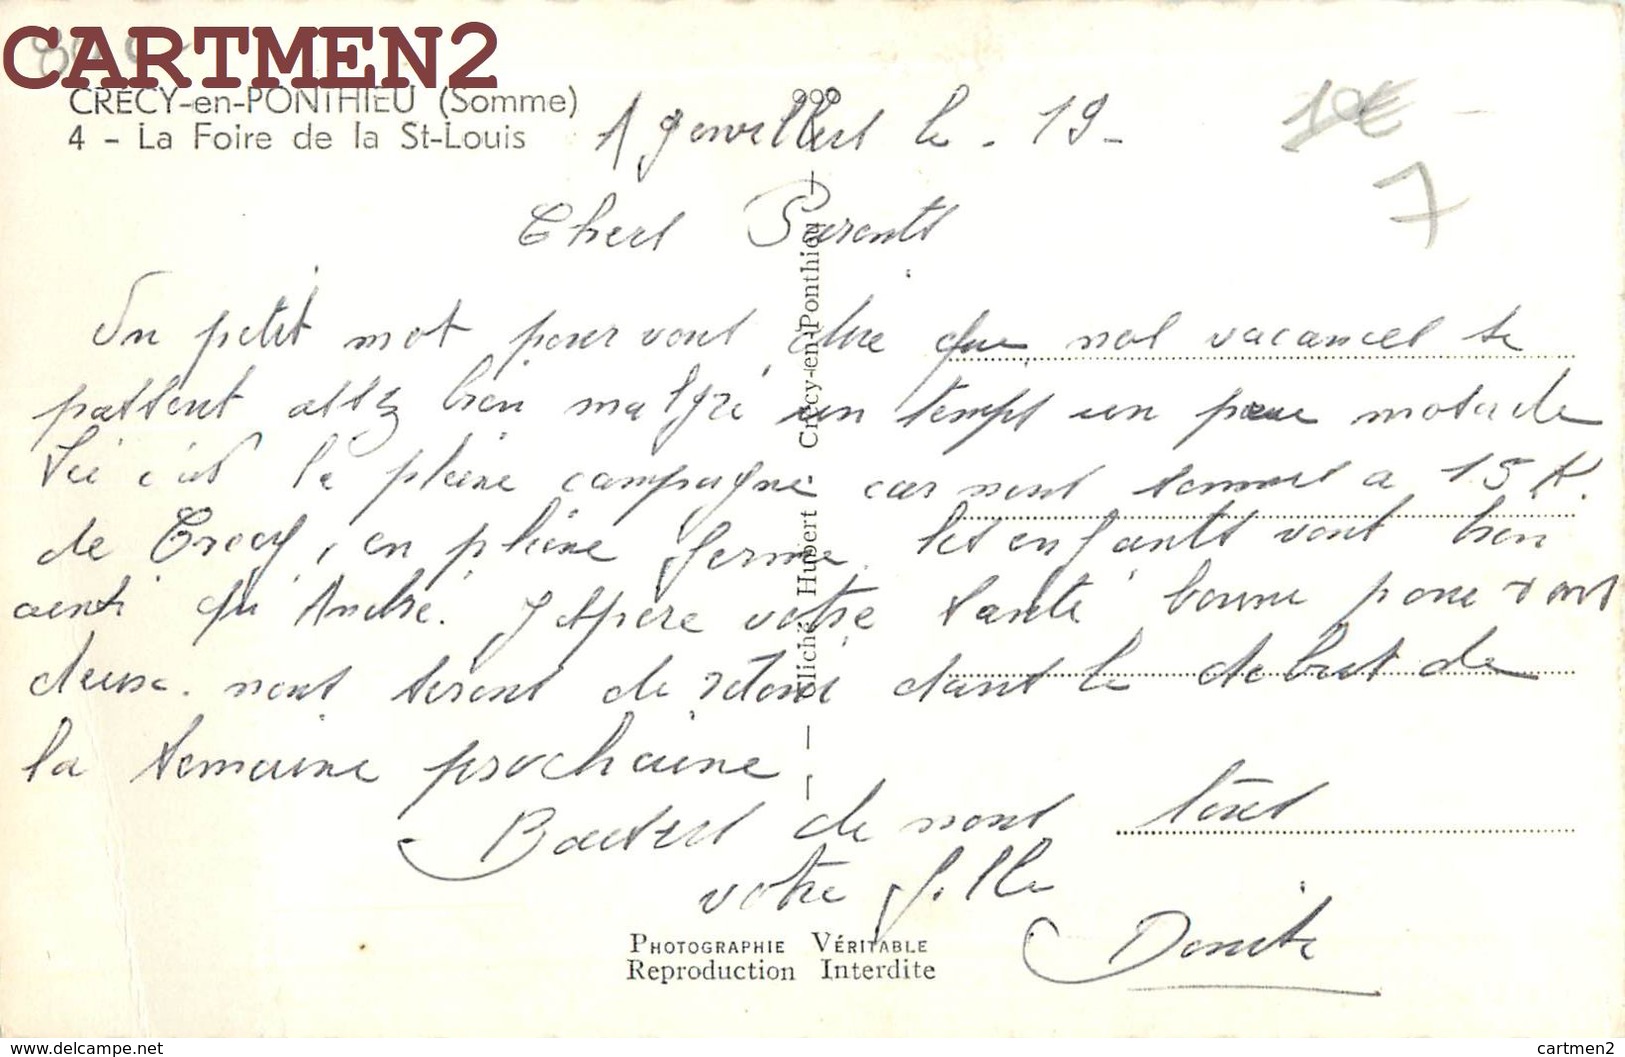 CARTMEN2
CRÉCY-en-PONTHIEU (Somme)
4 - La Foire de la St-Louis
Agenvillers le . 19 -
10€
7
Chers Parents
Un petit mot pour vous dire que nos vacances se
passent assez bien malgré un temps un peu maussade
Ici c'est la pleine campagne car nous sommes a 15 K.
de Crecy, en pleine ferme. les enfants vont bien
ainsi qu'André. J'espère votre santé bonne pour vous
deux. nous serons de retour dans le debut de
la semaine prochaine
Baisers de nous tous
votre fille
Denise
Cliché Hubert - Crécy-en-Ponthieu
PHOTOGRAPHIE VÉRITABLE
Reproduction Interdite
www.delcampe.net
cartmen2